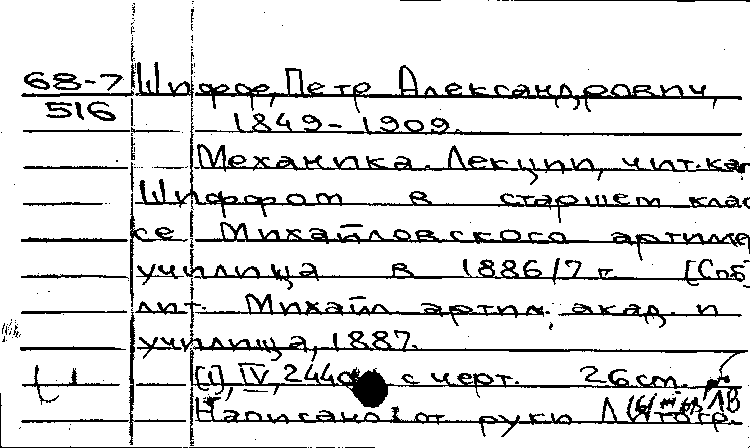 68-7 Шифф, Петр Александрович,
516 1849-1909.
Механика. Лекции, чит. кап
Шиффом в старшем клас
се Михайловского артиллер
училища в 1886/7 г. [Спб]
лит. Михайл. артил. акад. и
училища, 1887.
[1], IV, 244 с черт. 26 см.
Написано от руки Литогр.